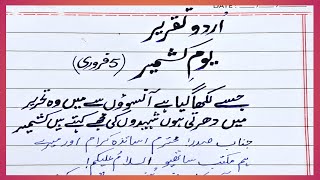 DATE:
اُردو تقریر
یومِ کشمیر (5 فروری)
جسے لکھا گیا ہے آنسوؤں سے میں وہ تحریر
میں دھرتی ہوں شہیدوں کی مجھے کہتے ہیں کشمیر
جناب صدر! محترم اساتذہ کرام اور میرے
ہم مکتب ساتھیو السلام علیکم!